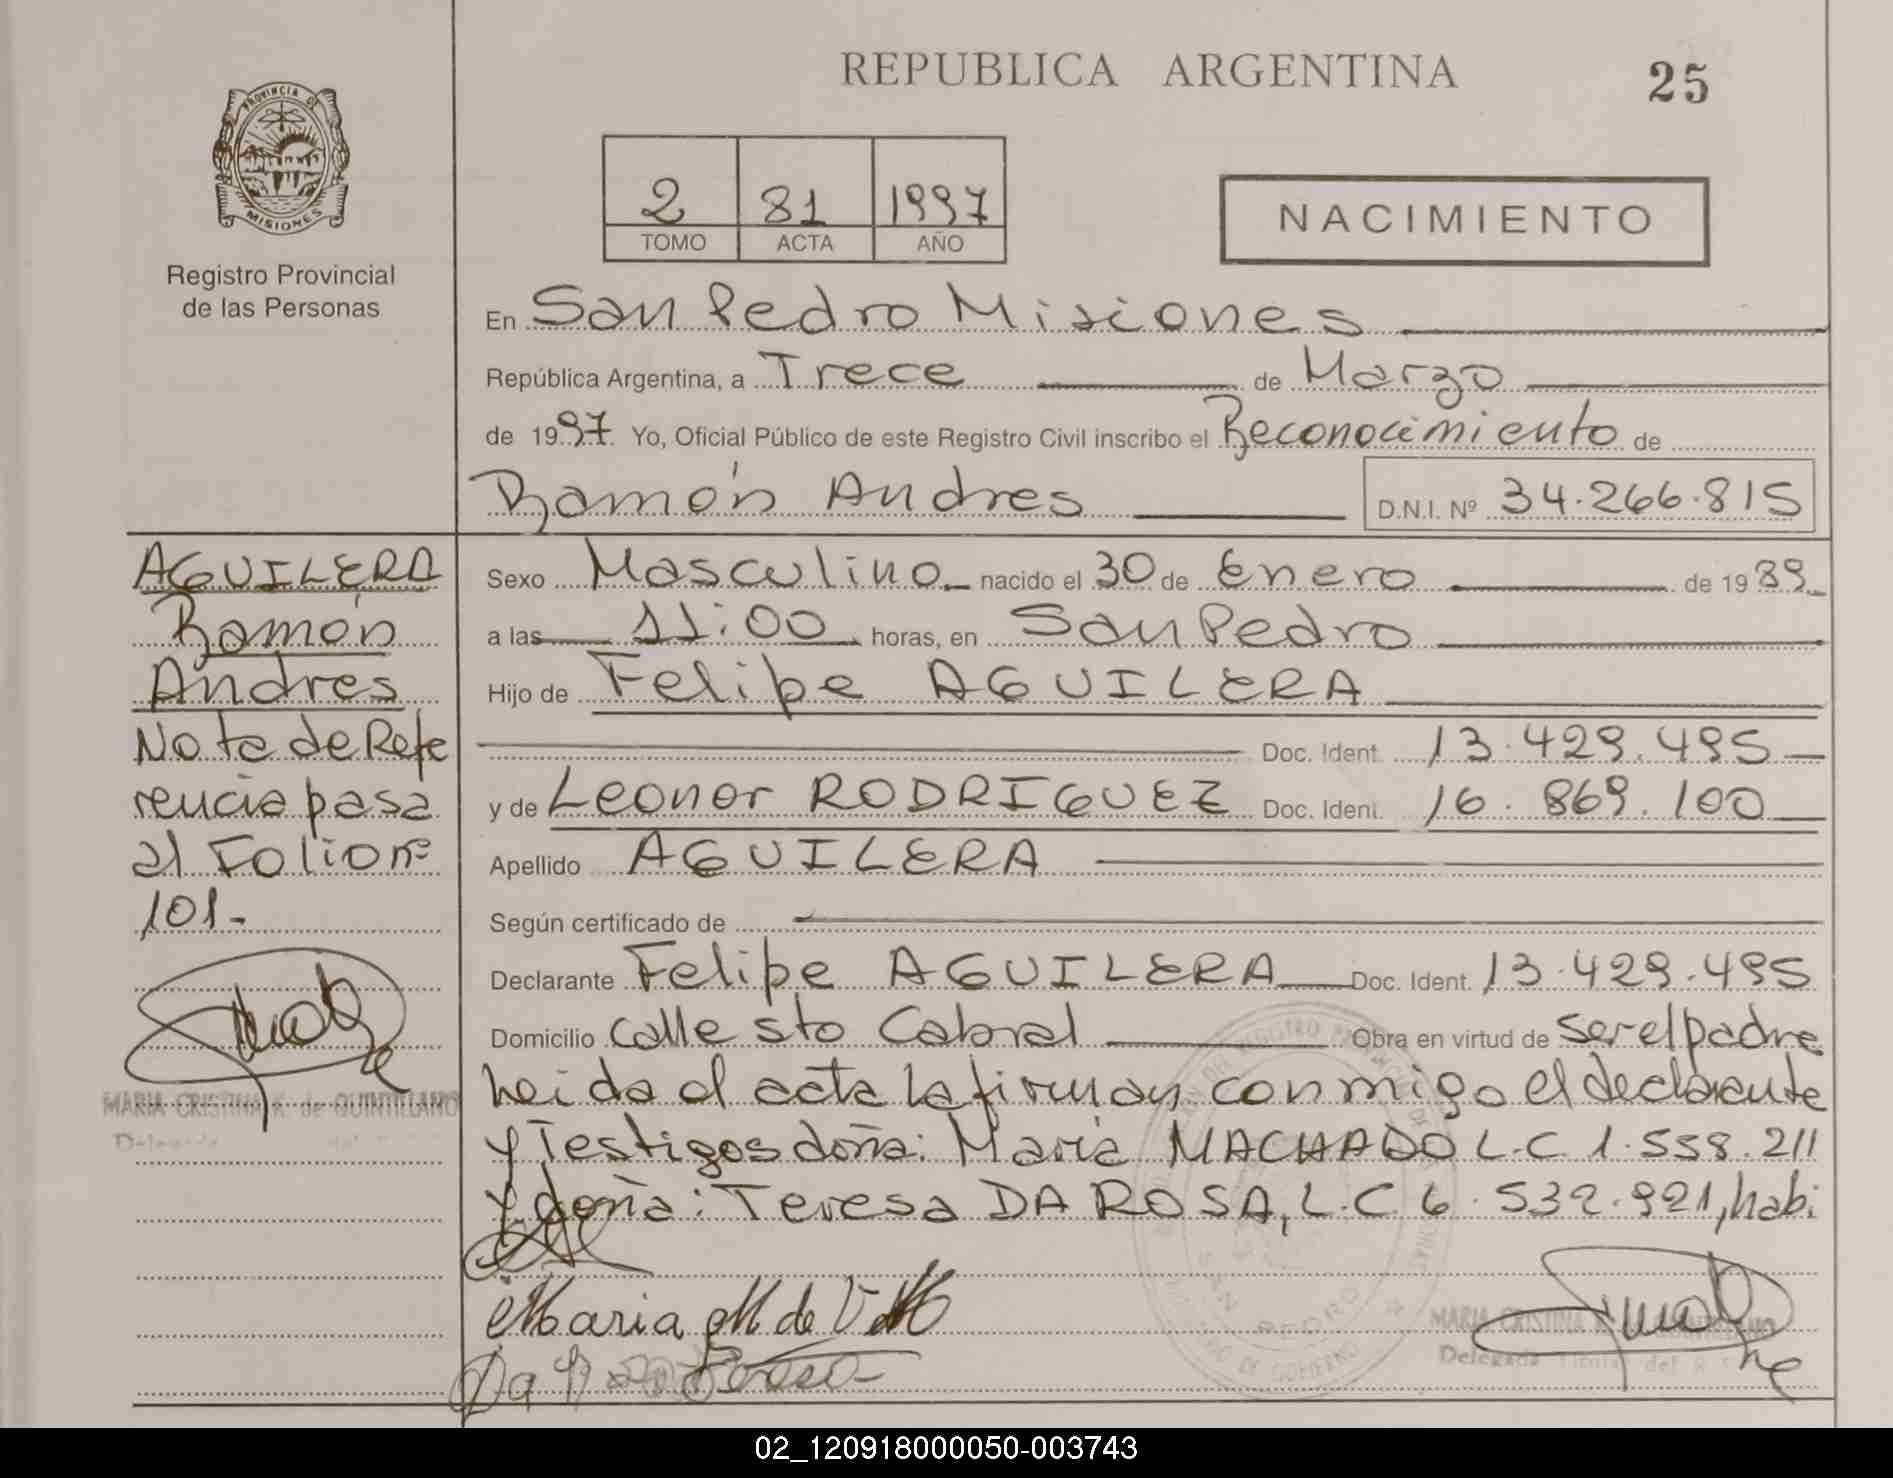 REPUBLICA ARGENTINA
25
PROVINCIA DE
MISIONES
Registro Provincial
de las Personas
2 81 1997
TOMO ACTA AÑO
NACIMIENTO
En San Pedro Misiones
República Argentina, a Trece de Marzo
de 1997. Yo, Oficial Público de este Registro Civil inscribo el Reconocimiento de
Ramón Andres D.N.I. Nº 34.266.815
AGUILERA
Ramón
Andres
Nota de Refe
rencia pasa
al Folio nº
101.-
MARIA CRISTINA K. de QUINTILLANO
Sexo Masculino nacido el 30 de Enero de 1989
a las 11:00 horas, en San Pedro
Hijo de Felipe AGUILERA
Doc. Ident. 13.429.495
y de Leonor RODRIGUEZ Doc. Ident. 16.869.100
Apellido AGUILERA
Según certificado de
Declarante Felipe AGUILERA Doc. Ident. 13.429.495
Domicilio calle sto Cabral Obra en virtud de ser el padre
heida el acta la firman conmigo el declarante
y Testigos doña: Maria MACHADO L.C 1.558.211
y doña: Teresa DA ROSA, L.C 6.532.921, habi
Maria M de
SAN PEDRO
MARIA CRISTINA
Delegada Titular del R
02_120918000050-003743